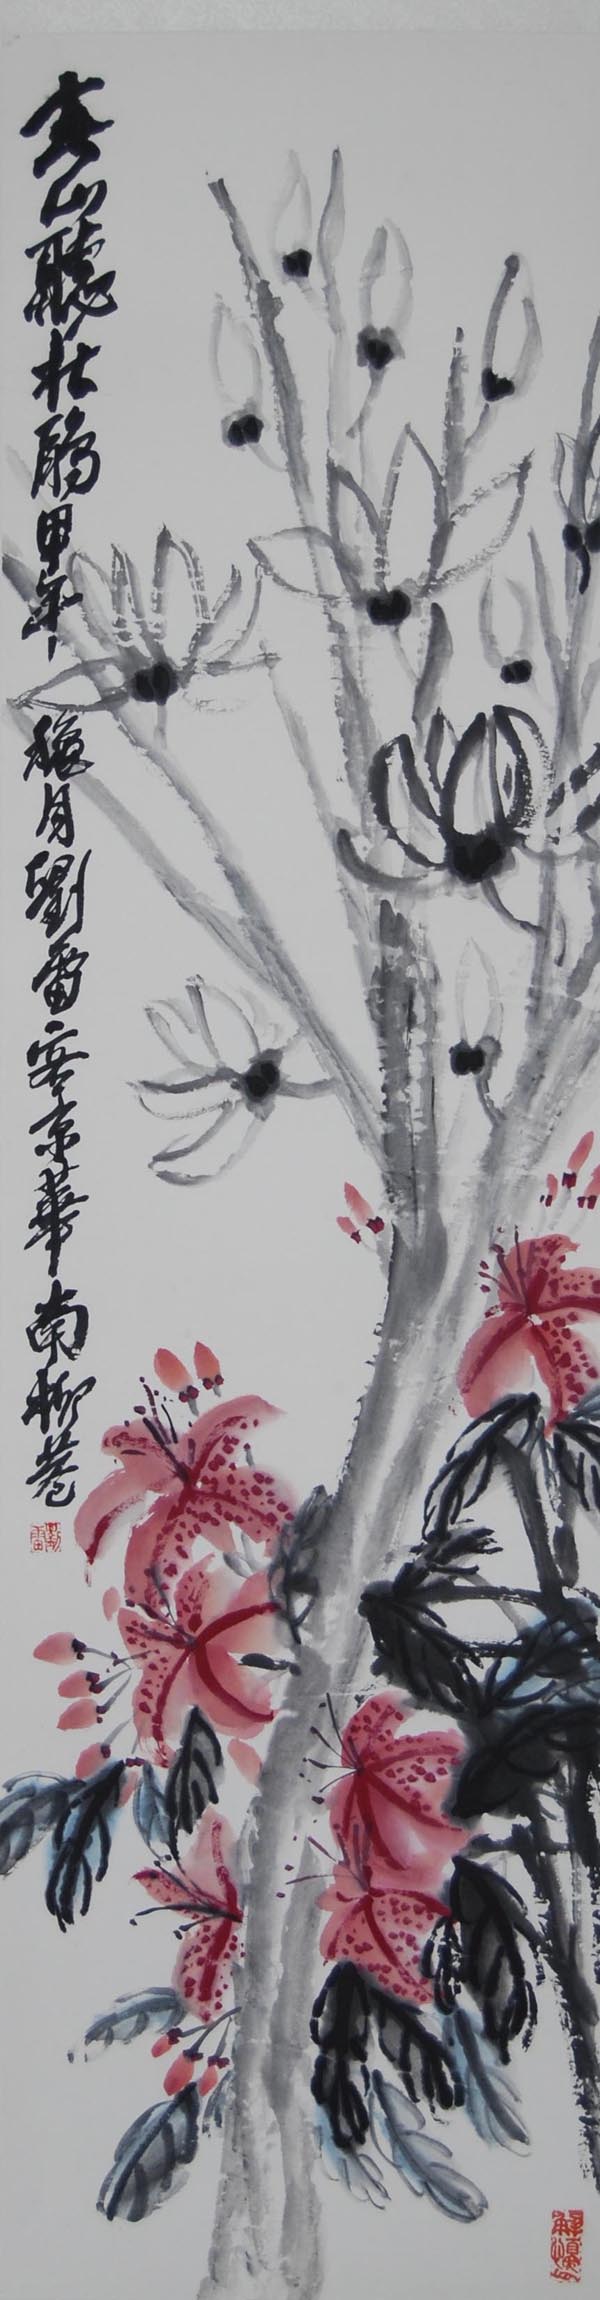 春山聽杜鵑甲午 穐月劉雷客京華南柳巷
劉雷